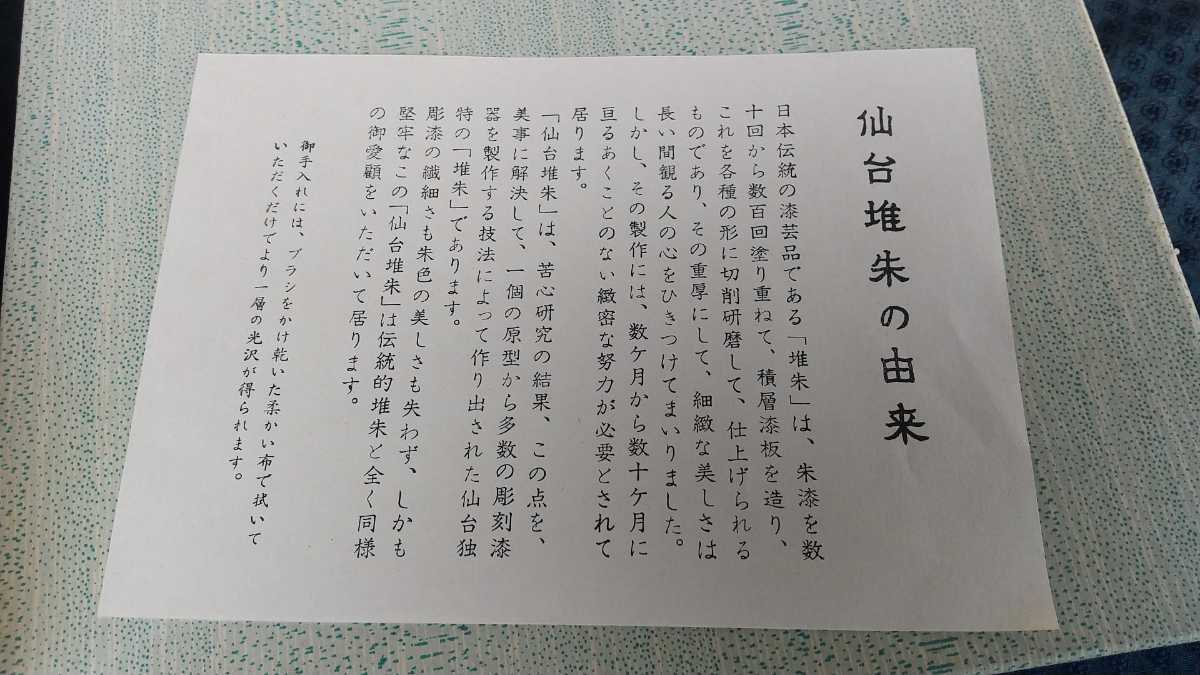 仙台堆朱の由来
日本伝統の漆芸品である「堆朱」は、朱漆を数
十回から数百回塗り重ねて、積層漆板を造り、
これを各種の形に切削研磨して、仕上げられる
ものであり、その重厚にして、細緻な美しさは
長い間観る人の心をひきつけてまいりました。
しかし、その製作には、数ケ月から数十ケ月に
亘るあくことのない緻密な努力が必要とされて
居ります。
「仙台堆朱」は、苦心研究の結果、この点を、
美事に解決して、一個の原型から多数の彫刻漆
器を製作する技法によって作り出された仙台独
特の「堆朱」であります。
彫漆の繊細さも朱色の美しさも失わず、しかも
堅牢なこの「仙台堆朱」は伝統的堆朱と全く同様
の御愛顧をいただいて居ります。
御手入れには、ブラシをかけ乾いた柔かい布で拭いて
いただくだけでより一層の光沢が得られます。